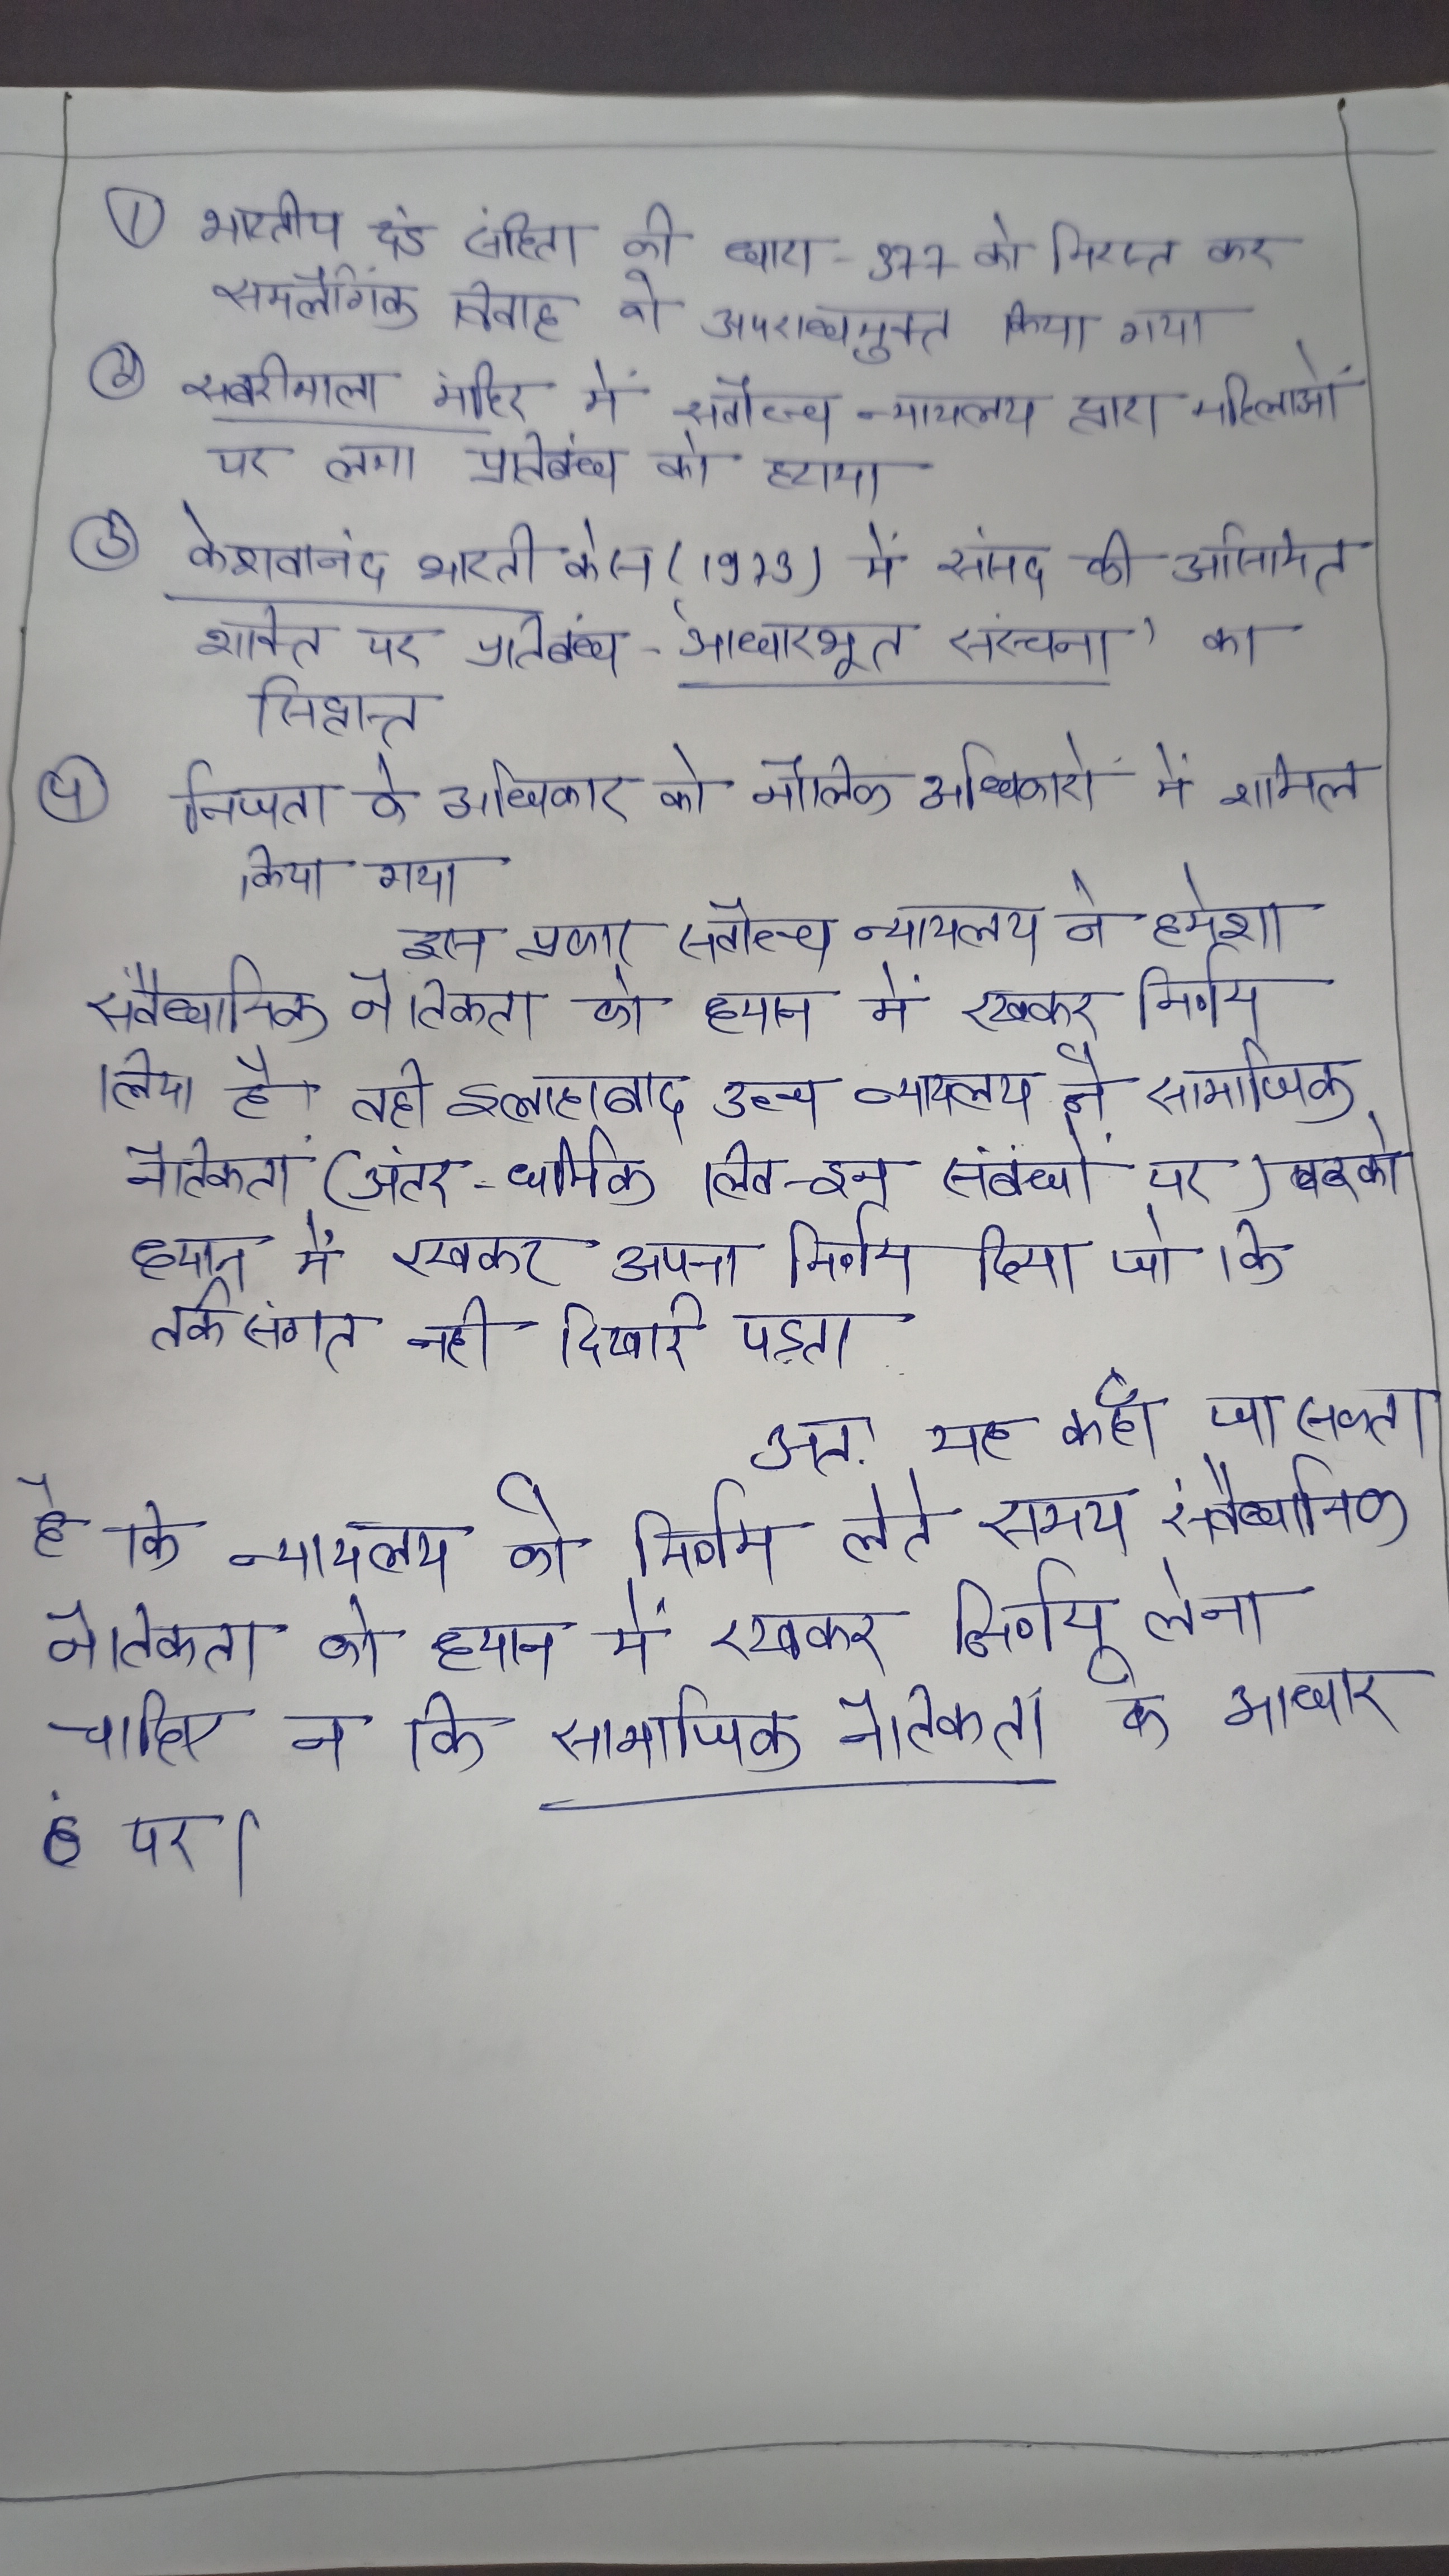 ① भारतीय दंड संहिता की धारा - 377 को निरस्त कर
समलैंगिक विवाह को अपराधमुक्त किया गया
② सबरीमाला मंदिर में सर्वोच्च न्यायलय द्वारा महिलाओं
पर लगा प्रतिबंध को हटाया
③ केशवानंद भारती केस (1973) में संसद की असिमित
शक्ति पर प्रतिबंध - 'आधारभूत संरचना' का
सिद्वान्त
④ निजता के अधिकार को मौलिक अधिकारों में शामिल
किया गया
इस प्रकार सर्वोच्च न्यायलय ने हमेशा
संवैधानिक नैतिकता को ध्यान में रखकर निर्णय
लिया है। वही इलाहाबाद उच्च न्यायलय ने सामाजिक
नैतिकता (अंतर - धार्मिक लिव-इन संबंधों पर) को
ध्यान में रखकर अपना निर्णय दिया जो कि
तर्कसंगत नही दिखाई पड़ता
अतः यह कहा जा सकता
है कि न्यायलय को निर्णय लेते समय संवैधानिक
नैतिकता को ध्यान में रखकर निर्णय लेना
चाहिए न कि सामाजिक नैतिकता के आधार
पर।